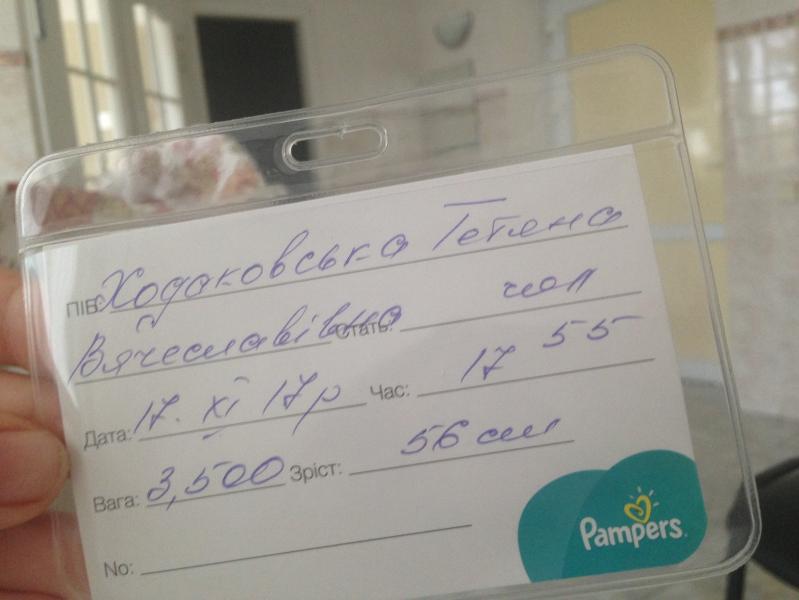 ПІБ: Ходаковська Тетяна
Вячеславівна Стать: чол
Дата: 17. XI 17р Час: 17 55
Вага: 3,500 Зріст: 56 см
No:
Pampers